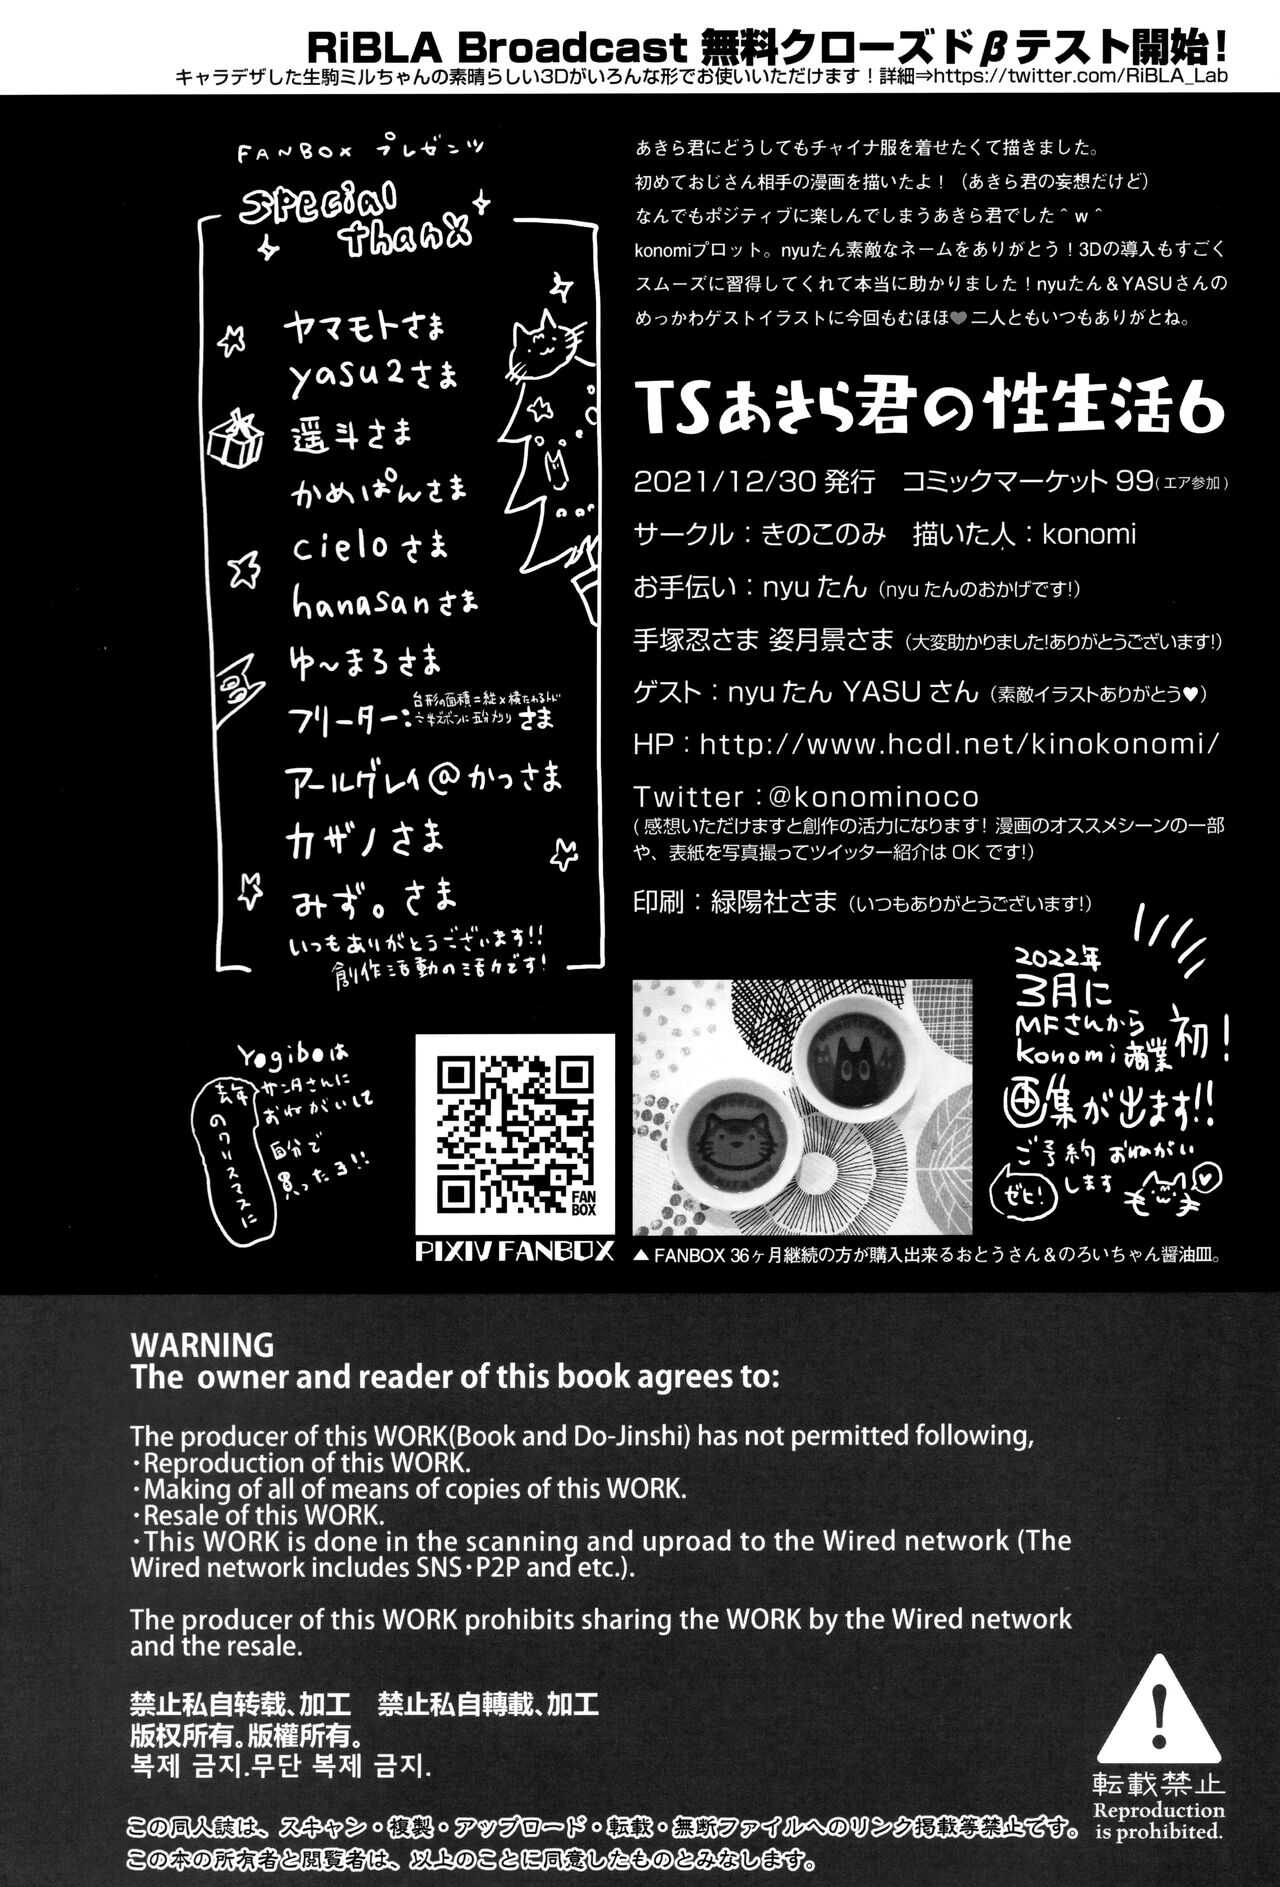 RiBLA Broadcast 無料クローズドβテスト開始!
キャラデザした生駒ミルちゃんの素晴らしい3Dがいろんな形でお使いいただけます！詳細⇒https://twitter.com/RiBLA_Lab
FANBOX プレゼンツ
Special
thanX
ヤマモトさま
yasu2さま
遥斗さま
かめぱんさま
cieloさま
hanasanさま
ゆ〜まろさま
フリーター：
さま
アールグレイ@かっさま
カザノさま
みず。さま
いつもありがとうございます!!
創作活動の活力です!
あきら君にどうしてもチャイナ服を着せたくて描きました。
初めておじさん相手の漫画を描いたよ！（あきら君の妄想だけど）
なんでもポジティブに楽しんでしまうあきら君でした＾ｗ＾
konomiプロット。nyuたん素敵なネームをありがとう！3Dの導入もすごく
スムーズに習得してくれて本当に助かりました！nyuたん＆YASUさんの
めっかわゲストイラストに今回もむほほ♥二人ともいつもありがとね。
TSあきら君の性生活6
2021/12/30 発行　コミックマーケット 99(エア参加)
サークル：きのこのみ　描いた人：konomi
お手伝い：nyuたん（nyuたんのおかげです!）
手塚忍さま 姿月景さま（大変助かりました!ありがとうございます!）
ゲスト：nyuたん YASUさん（素敵イラストありがとう♥）
HP：http://www.hcdl.net/kinokonomi/
Twitter：@konominoco
(感想いただけますと創作の活力になります！漫画のオススメシーンの一部
や、表紙を写真撮ってツイッター紹介は OK です!）
印刷：緑陽社さま（いつもありがとうございます!）
2022年
3月に
MFさんから
konomi商業
初！
画集が出ます!!
ご予約おねがい
します
ゼヒ!
Yogiboは
サンタさんに
おねがいして
自分で
買ったよ!!
去年
のクリスマスに
FAN
BOX
PIXIV FANBOX
▲ FANBOX 36ヶ月継続の方が購入出来るおとうさん＆のろいちゃん醤油皿。
WARNING
The owner and reader of this book agrees to:
The producer of this WORK(Book and Do-Jinshi) has not permitted following,
・Reproduction of this WORK.
・Making of all of means of copies of this WORK.
・Resale of this WORK.
・This WORK is done in the scanning and uproad to the Wired network (The
Wired network includes SNS・P2P and etc.).
The producer of this WORK prohibits sharing the WORK by the Wired network
and the resale.
禁止私自转载、加工　禁止私自轉載、加工
版权所有。版權所有。
복제 금지.무단 복제 금지.
転載禁止
Reproduction
is prohibited.
この同人誌は、スキャン・複製・アップロード・転載・無断ファイルへのリンク掲載等禁止です。
この本の所有者と閲覧者は、以上のことに同意したものとみなします。